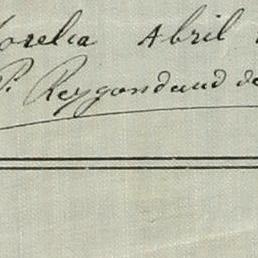 orelia Abril
P. Reygondaud de